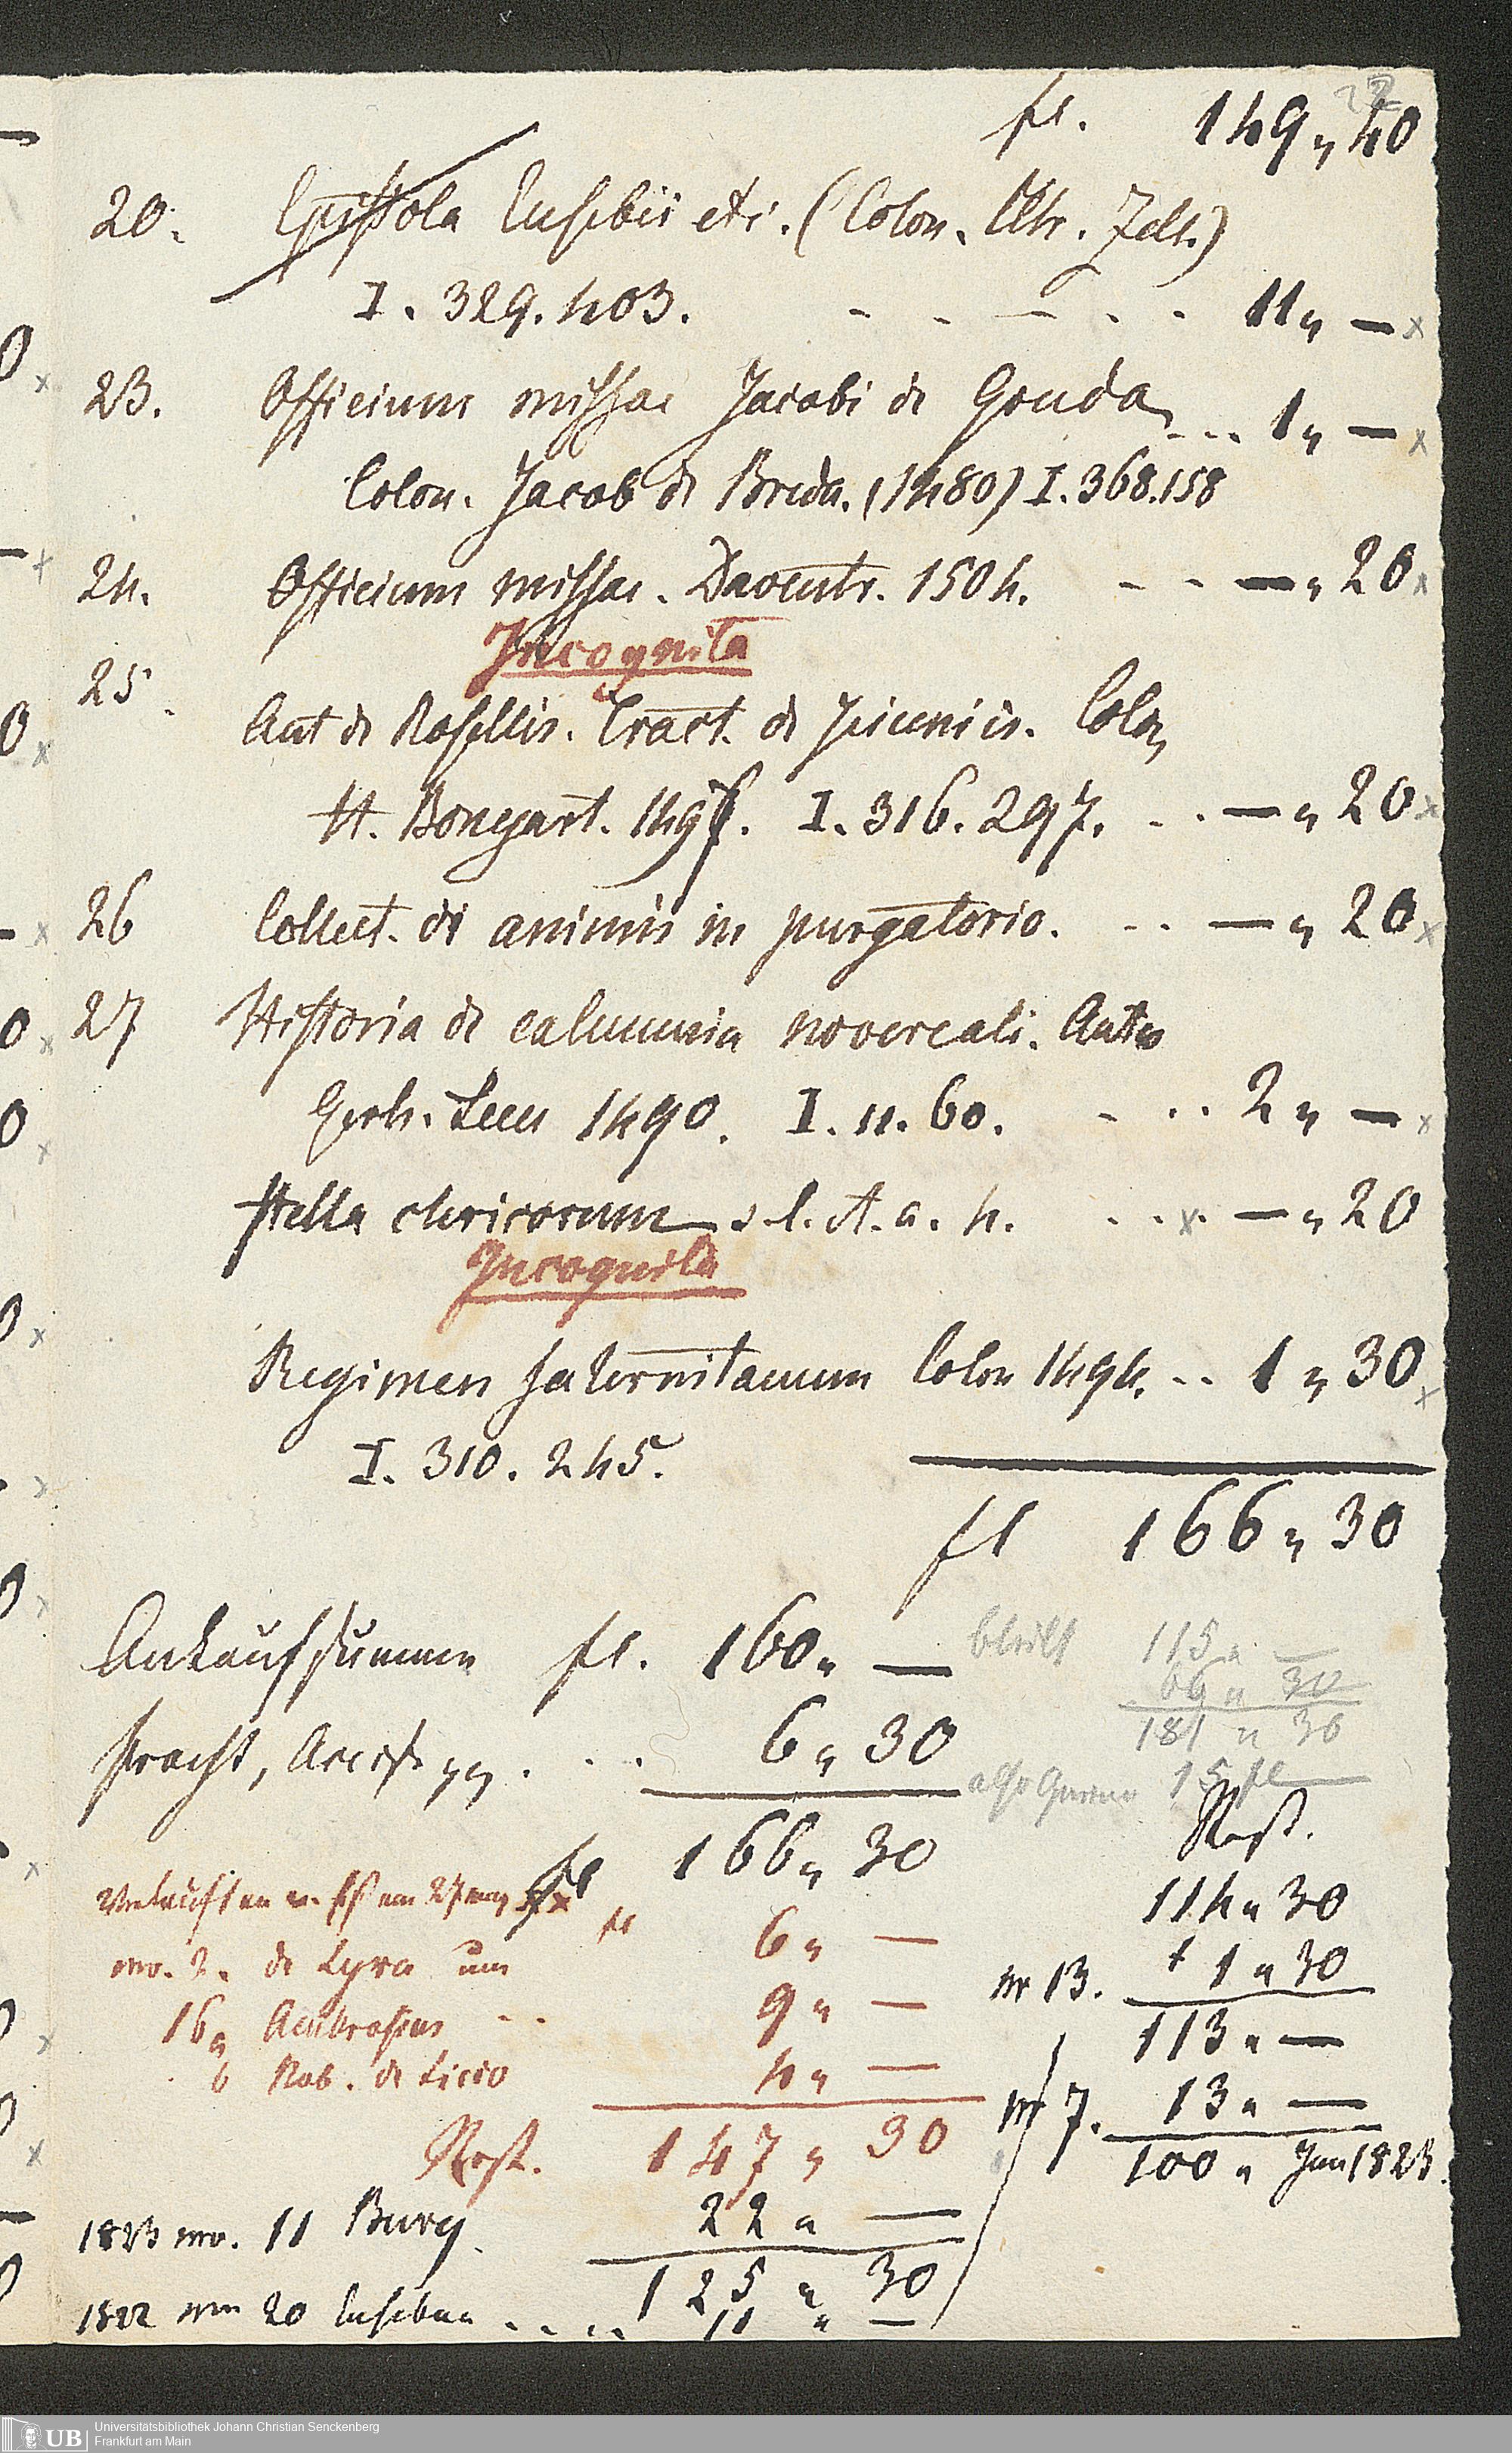 22
fl. 149 „ 40
20. Epistola Eusebii etc. (Colon. Ulr. Zell.)
I. 329. 403. - - - - - 11 „ — x
23. Officium missae Jacobi de Gouda ... 1 „ — x
Colon. Jacob de Breda. (1480) I. 368. 158
24. Officium missae. Daventr. 1504. - - — „ 20 x
Incognita
25. Ant de Rosellis. Tract. de Jejuniis. Colon
H. Bongart. 149 . I. 316. 297. - - — „ 20 x
26 Collect. de animis in purgatorio. - - — „ 20 x
27 Historia de calumnia novercali. Antw
Gerh. Leeu 1490. I. 11. 60. - - - 2 „ — x
Stella clericorum s. l. et. a. 4. . . x . — „ 20
Incognita
Regimen salernitanum Colon 1494. - - 1 „ 30 x
I. 310. 245.
fl 166 „ 30
Ankaufsumme fl. 160 „ —
Fracht, Accise . . . 6 „ 30
fl 166 „ 30
bleibt 115 „ —
66 „ 30
181 „ 30
also 15 fl —
Verkauft an
no. 2. de Lyra um fl 6 „ —
16 „ Ambrosius - - 9 „ —
6 Rob. de Licio 4 „ —
Rest. 147 „ 30
1823 no. 11 Burg. 22 „ —
125 „ 30
1822 20 Eusebius . . . . 11 „ —
Rest.
114 „ 30
nr 13. + 1 „ 30
113 „ —
nr 7. 13 „ —
100 „ Jan 1823.
UB Universitätsbibliothek Johann Christian Senckenberg
Frankfurt am Main